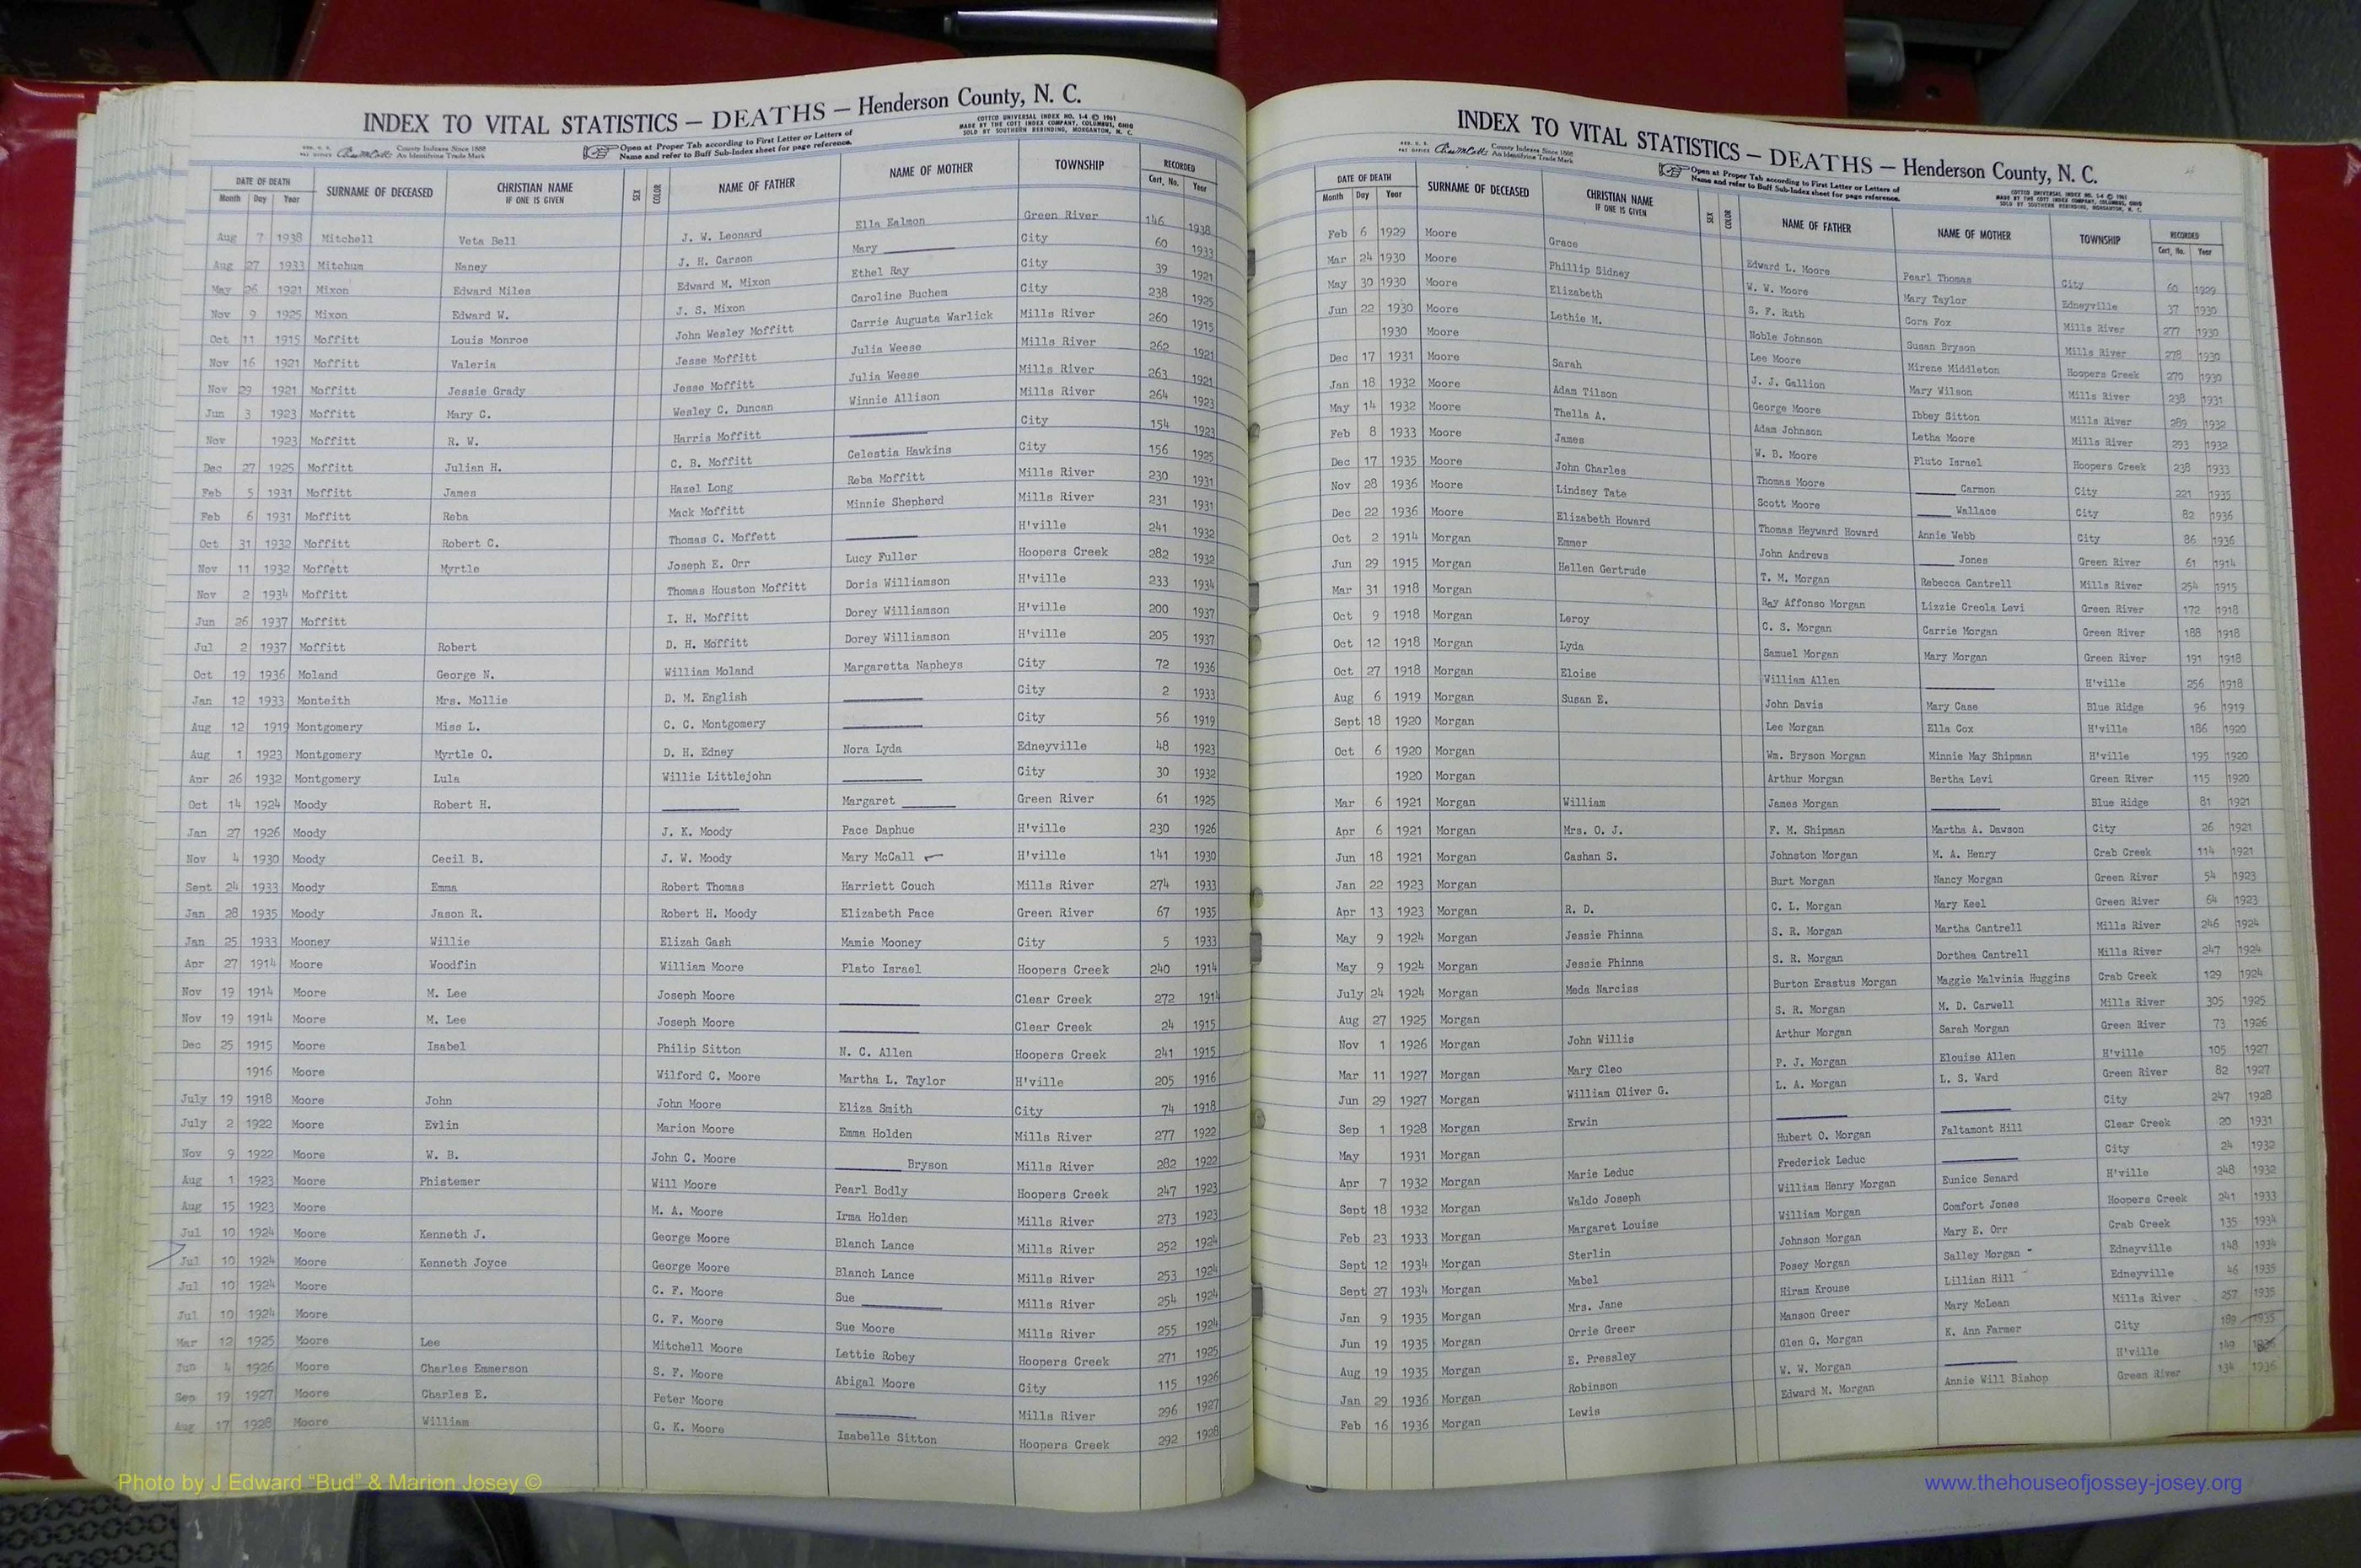 INDEX TO VITAL STATISTICS — DEATHS — Henderson County, N. C.
REG. U. S. PAT. OFFICE County Indexes Since 1888 An Identifying Trade Mark
Open at Proper Tab according to First Letter or Letters of
Name and refer to Buff Sub-Index sheet for page reference.
COTTCO UNIVERSAL INDEX NO. 1-4 © 1961
MADE BY THE COTT INDEX COMPANY, COLUMBUS, OHIO
SOLD BY SOUTHERN REBINDING, MORGANTON, N. C.
DATE OF DEATH SURNAME OF DECEASED CHRISTIAN NAME IF ONE IS GIVEN SEX COLOR NAME OF FATHER NAME OF MOTHER TOWNSHIP RECORDED
Month Day Year Cert. No. Year
Aug 7 1938 Mitchell Veta Bell J. W. Leonard Ella Ealmon Green River 146 1938
Aug 27 1933 Mitchum Nancy J. H. Carson Mary ____ City 60 1933
May 26 1921 Mixon Edward Miles Edward M. Mixon Ethel Ray City 39 1921
Nov 9 1925 Mixon Edward W. J. S. Mixon Caroline Buchem City 238 1925
Oct 11 1915 Moffitt Louis Monroe John Wesley Moffitt Carrie Augusta Warlick Mills River 260 1915
Nov 16 1921 Moffitt Valeria Jesse Moffitt Julia Weese Mills River 262 1921
Nov 29 1921 Moffitt Jessie Grady Jesse Moffitt Julia Weese Mills River 263 1921
Jun 3 1923 Moffitt Mary C. Wesley C. Duncan Winnie Allison Mills River 264 1923
Nov 1923 Moffitt R. W. Harris Moffitt ____ City 154 1923
Dec 27 1925 Moffitt Julian H. C. B. Moffitt Celestia Hawkins City 156 1925
Feb 5 1931 Moffitt James Hazel Long Reba Moffitt Mills River 230 1931
Feb 6 1931 Moffitt Reba Mack Moffitt Minnie Shepherd Mills River 231 1931
Oct 31 1932 Moffitt Robert C. Thomas C. Moffett ____ H'ville 241 1932
Nov 11 1932 Moffett Myrtle Joseph E. Orr Lucy Fuller Hoopers Creek 282 1932
Nov 2 1934 Moffitt Thomas Houston Moffitt Doris Williamson H'ville 233 1934
Jun 26 1937 Moffitt I. H. Moffitt Dorey Williamson H'ville 200 1937
Jul 2 1937 Moffitt Robert D. H. Moffitt Dorey Williamson H'ville 205 1937
Oct 19 1936 Moland George N. William Moland Margaretta Napheys City 72 1936
Jan 12 1933 Monteith Mrs. Mollie D. M. English ____ City 2 1933
Aug 12 1919 Montgomery Miss L. C. C. Montgomery ____ City 56 1919
Aug 1 1923 Montgomery Myrtle O. D. H. Edney Nora Lyda Edneyville 48 1923
Apr 26 1932 Montgomery Lula Willie Littlejohn ____ City 30 1932
Oct 14 1924 Moody Robert H. ____ Margaret ____ Green River 61 1925
Jan 27 1926 Moody J. K. Moody Pace Daphue H'ville 230 1926
Nov 4 1930 Moody Cecil B. J. W. Moody Mary McCall H'ville 141 1930
Sept 24 1933 Moody Emma Robert Thomas Harriett Couch Mills River 274 1933
Jan 28 1935 Moody Jason R. Robert H. Moody Elizabeth Pace Green River 67 1935
Jan 25 1933 Mooney Willie Elizah Gash Mamie Mooney City 5 1933
Apr 27 1914 Moore Woodfin William Moore Plato Israel Hoopers Creek 240 1914
Nov 19 1914 Moore M. Lee Joseph Moore ____ Clear Creek 272 1914
Nov 19 1914 Moore M. Lee Joseph Moore ____ Clear Creek 24 1915
Dec 25 1915 Moore Isabel Philip Sitton N. C. Allen Hoopers Creek 241 1915
1916 Moore Wilford C. Moore Martha L. Taylor H'ville 205 1916
July 19 1918 Moore John John Moore Eliza Smith City 74 1918
July 2 1922 Moore Evlin Marion Moore Emma Holden Mills River 277 1922
Nov 9 1922 Moore W. B. John C. Moore ____ Bryson Mills River 282 1922
Aug 1 1923 Moore Phistemer Will Moore Pearl Bodly Hoopers Creek 247 1923
Aug 15 1923 Moore M. A. Moore Irma Holden Mills River 273 1923
Jul 10 1924 Moore Kenneth J. George Moore Blanch Lance Mills River 252 1924
Jul 10 1924 Moore Kenneth Joyce George Moore Blanch Lance Mills River 253 1924
Jul 10 1924 Moore C. F. Moore Sue ____ Mills River 254 1924
Jul 10 1924 Moore C. F. Moore Sue Moore Mills River 255 1924
Mar 12 1925 Moore Lee Mitchell Moore Lettie Robey Hoopers Creek 271 1925
Jun 4 1926 Moore Charles Emmerson S. F. Moore Abigal Moore City 115 1926
Sep 19 1927 Moore Charles E. Peter Moore ____ Mills River 296 1927
Aug 17 1928 Moore William G. K. Moore Isabelle Sitton Hoopers Creek 292 1928
INDEX TO VITAL STATISTICS — DEATHS — Henderson County, N. C.
REG. U. S. PAT. OFFICE County Indexes Since 1888 An Identifying Trade Mark
Open at Proper Tab according to First Letter or Letters of
Name and refer to Buff Sub-Index sheet for page reference.
COTTCO UNIVERSAL INDEX NO. 1-4 © 1961
MADE BY THE COTT INDEX COMPANY, COLUMBUS, OHIO
SOLD BY SOUTHERN REBINDING, MORGANTON, N. C.
DATE OF DEATH SURNAME OF DECEASED CHRISTIAN NAME IF ONE IS GIVEN SEX COLOR NAME OF FATHER NAME OF MOTHER TOWNSHIP RECORDED
Month Day Year Cert. No. Year
Feb 6 1929 Moore Grace Edward L. Moore Pearl Thomas City 60 1929
Mar 24 1930 Moore Phillip Sidney W. W. Moore Mary Taylor Edneyville 37 1930
May 30 1930 Moore Elizabeth S. F. Ruth Cora Fox Mills River 277 1930
Jun 22 1930 Moore Lethie M. Noble Johnson Susan Bryson Mills River 278 1930
1930 Moore Lee Moore Mirene Middleton Hoopers Creek 270 1930
Dec 17 1931 Moore Sarah J. J. Gallion Mary Wilson Mills River 238 1931
Jan 18 1932 Moore Adam Tilson George Moore Ibbey Sitton Mills River 289 1932
May 14 1932 Moore Thella A. Adam Johnson Letha Moore Mills River 293 1932
Feb 8 1933 Moore James W. B. Moore Pluto Israel Hoopers Creek 238 1933
Dec 17 1935 Moore John Charles Thomas Moore ____ Carmon City 221 1935
Nov 28 1936 Moore Lindsey Tate Scott Moore ____ Wallace City 82 1936
Dec 22 1936 Moore Elizabeth Howard Thomas Heyward Howard Annie Webb City 86 1936
Oct 2 1914 Morgan Emmer John Andrews ____ Jones Green River 61 1914
Jun 29 1915 Morgan Hellen Gertrude T. M. Morgan Rebecca Cantrell Mills River 254 1915
Mar 31 1918 Morgan Ray Affonso Morgan Lizzie Creola Levi Green River 172 1918
Oct 9 1918 Morgan Leroy C. S. Morgan Carrie Morgan Green River 188 1918
Oct 12 1918 Morgan Lyda Samuel Morgan Mary Morgan Green River 191 1918
Oct 27 1918 Morgan Eloise William Allen ____ H'ville 256 1918
Aug 6 1919 Morgan Susan E. John Davis Mary Case Blue Ridge 96 1919
Sept 18 1920 Morgan Lee Morgan Ella Cox H'ville 186 1920
Oct 6 1920 Morgan Wm. Bryson Morgan Minnie May Shipman H'ville 195 1920
1920 Morgan Arthur Morgan Bertha Levi Green River 115 1920
Mar 6 1921 Morgan William James Morgan ____ Blue Ridge 81 1921
Apr 6 1921 Morgan Mrs. O. J. F. M. Shipman Martha A. Dawson City 26 1921
Jun 18 1921 Morgan Cashan S. Johnston Morgan M. A. Henry Crab Creek 114 1921
Jan 22 1923 Morgan Burt Morgan Nancy Morgan Green River 54 1923
Apr 13 1923 Morgan R. D. C. L. Morgan Mary Keel Green River 64 1923
May 9 1924 Morgan Jessie Phinna S. R. Morgan Martha Cantrell Mills River 246 1924
May 9 1924 Morgan Jessie Phinna S. R. Morgan Dorthea Cantrell Mills River 247 1924
July 24 1924 Morgan Meda Narciss Burton Erastus Morgan Maggie Malvinia Huggins Crab Creek 129 1924
Aug 27 1925 Morgan S. R. Morgan M. D. Carwell Mills River 305 1925
Nov 1 1926 Morgan John Willis Arthur Morgan Sarah Morgan Green River 73 1926
Mar 11 1927 Morgan Mary Cleo P. J. Morgan Elouise Allen H'ville 105 1927
Jun 29 1927 Morgan William Oliver G. L. A. Morgan L. S. Ward Green River 82 1927
Sep 1 1928 Morgan Erwin ____ ____ City 247 1928
May 1931 Morgan Hubert O. Morgan Faltamont Hill Clear Creek 20 1931
Apr 7 1932 Morgan Marie Leduc Frederick Leduc ____ City 24 1932
Sept 18 1932 Morgan Waldo Joseph William Henry Morgan Eunice Senard H'ville 248 1932
Feb 23 1933 Morgan Margaret Louise William Morgan Comfort Jones Hoopers Creek 241 1933
Sept 12 1934 Morgan Sterlin Johnson Morgan Mary E. Orr Crab Creek 135 1934
Sept 27 1934 Morgan Mabel Posey Morgan Salley Morgan Edneyville 148 1934
Jan 9 1935 Morgan Mrs. Jane Hiram Krouse Lillian Hill Edneyville 46 1935
Jun 19 1935 Morgan Orrie Greer Manson Greer Mary McLean Mills River 257 1935
Aug 19 1935 Morgan E. Pressley Glen G. Morgan K. Ann Farmer City 189 1935
Jan 29 1936 Morgan Robinson W. W. Morgan ____ H'ville 149 1936
Feb 16 1936 Morgan Lewis Edward M. Morgan Annie Will Bishop Green River 134 1936
Photo by J Edward “Bud” & Marion Josey ©
www.thehouseofjossey-josey.org